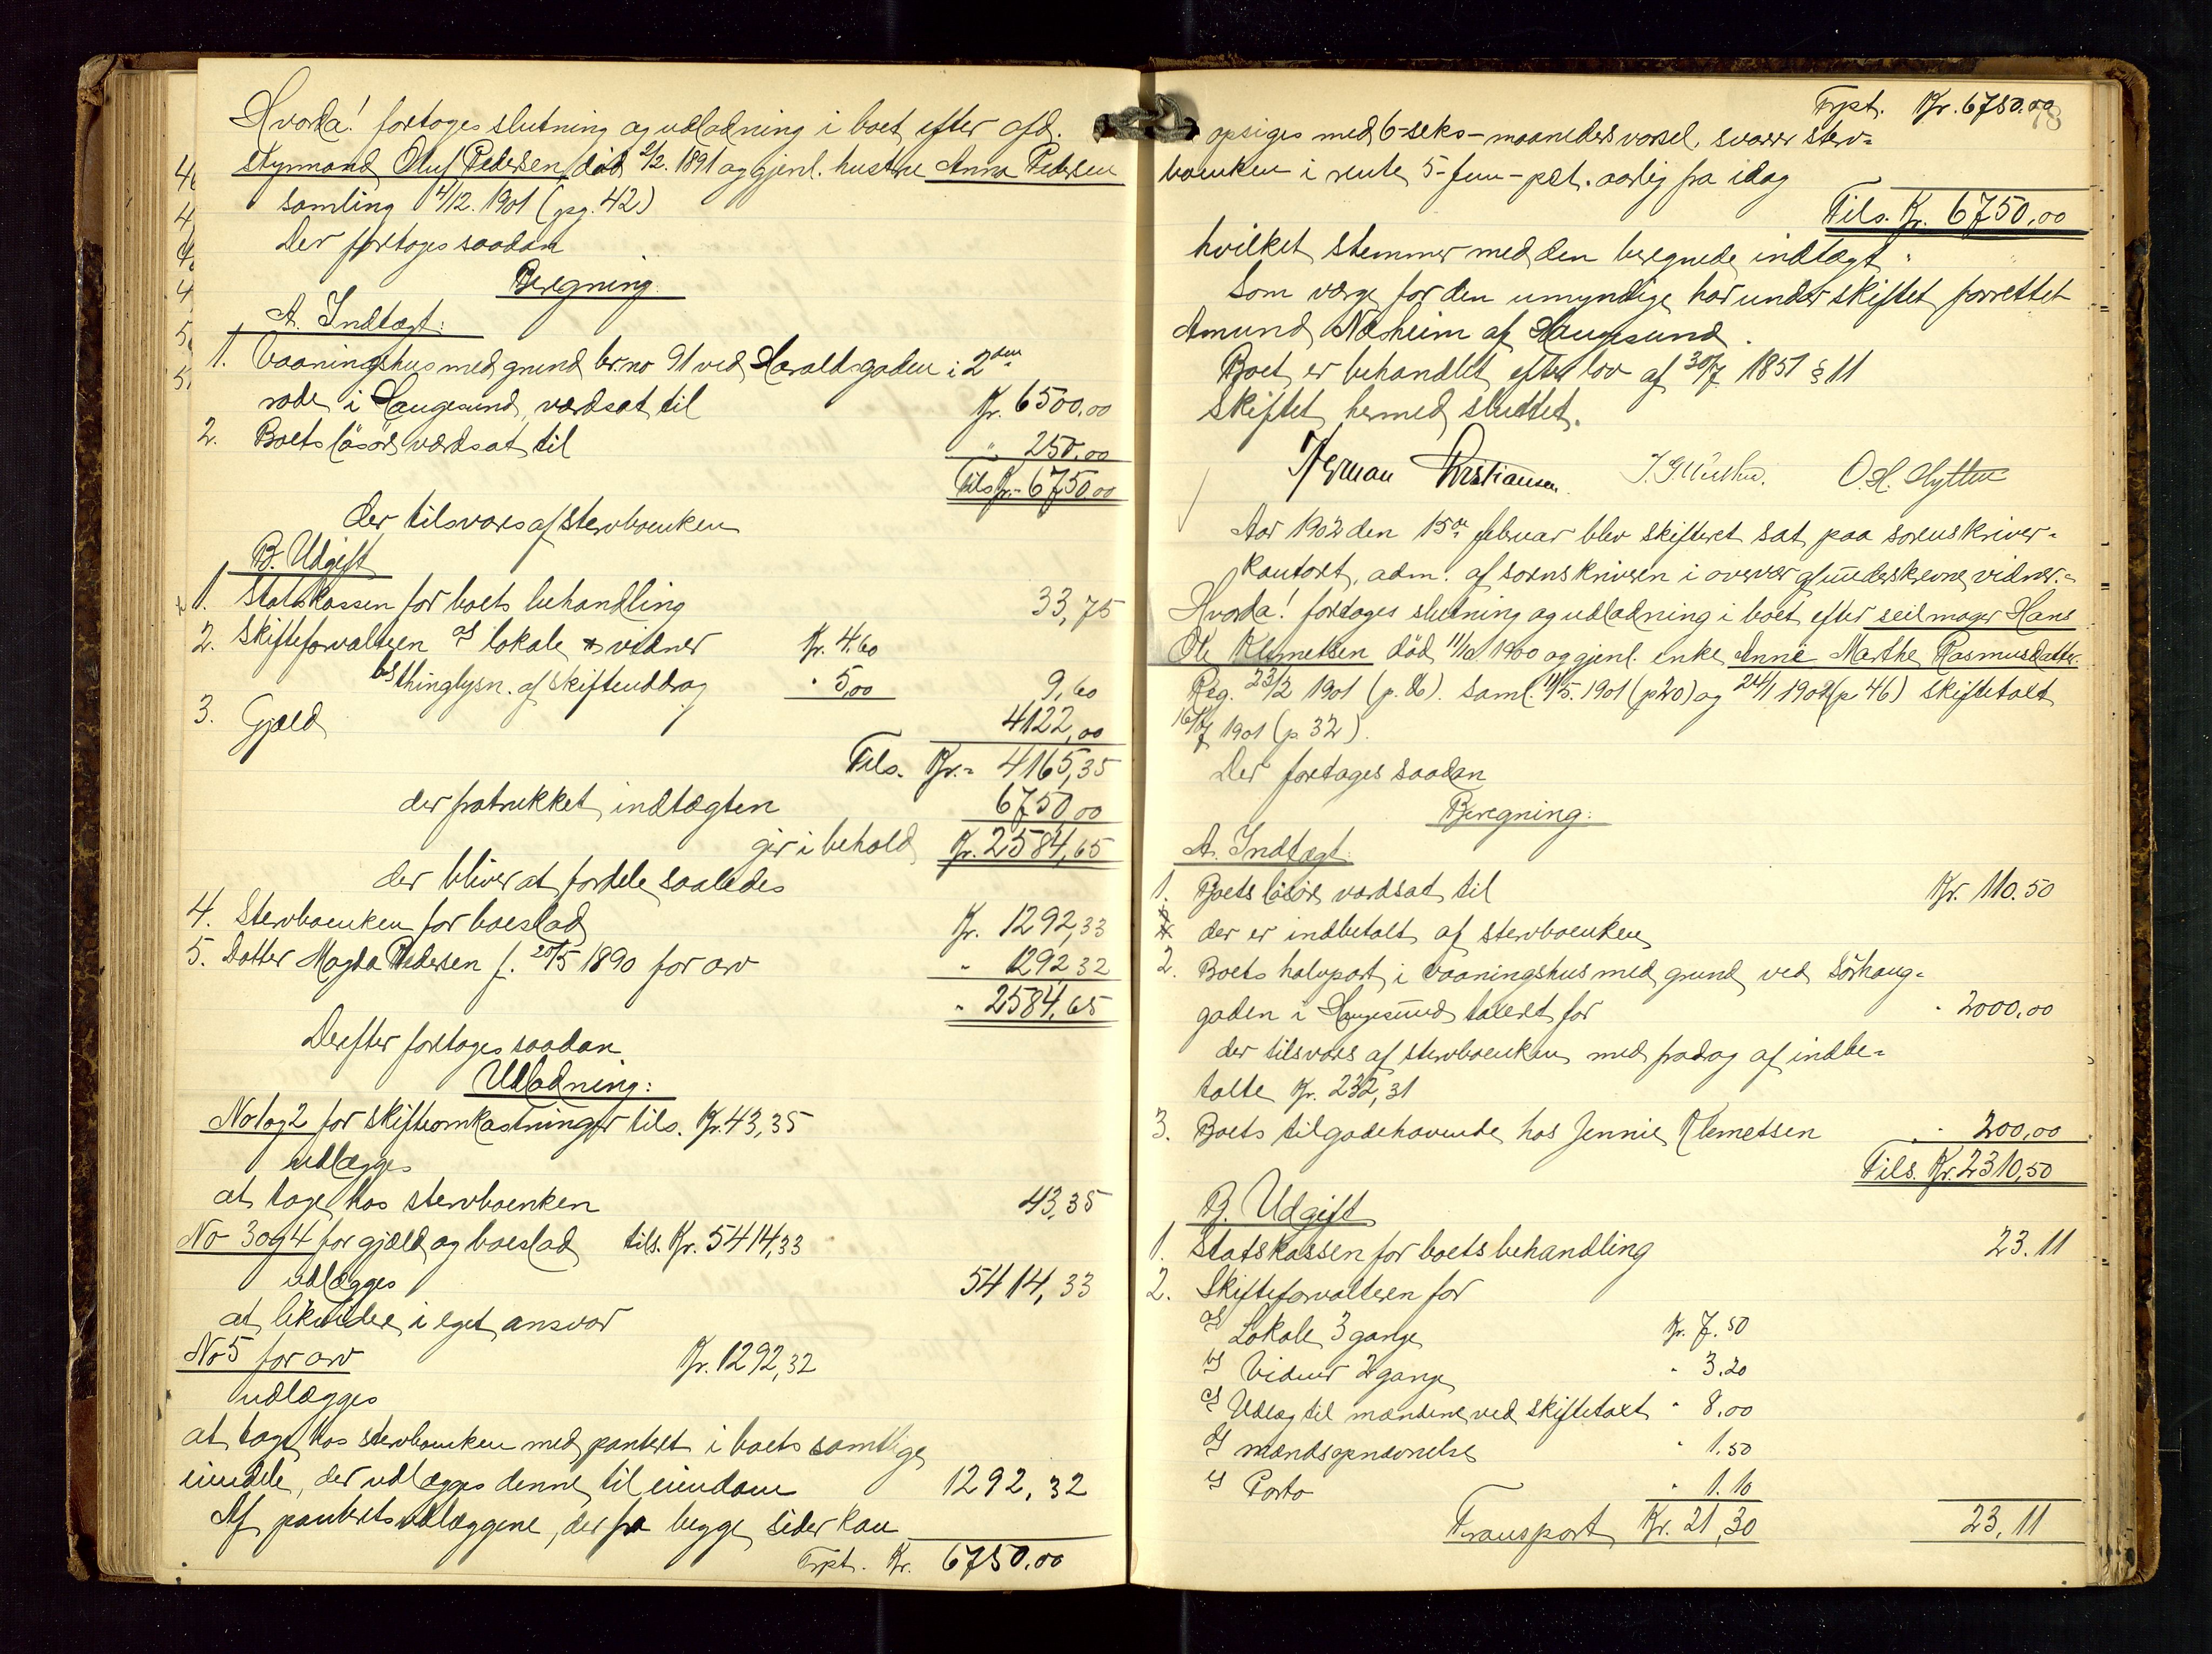 Hvorda! foretages slutning og udlodning i boet efter afd.
styrmand Oluf Pedersen død 2/2. 1891 og gjenl. hustru Anna Pedersen
samling 4/12. 1901 (pg. 42)
Der foretages saadan
Beregning
A. Indtægt:
1. Vaaningshus med grund br. no 91 ved Haraldsgaden i 2den
rode i Haugesund, værdsat til Kr. 6500,00
2. Boets løsøre værdsat til " 250,00
Tils Kr. 6750,00
der tilsvares af stervboenken
B. Udgift
1. Statskassen for boets behandling 33,75
2. Skifteforvalteren a) lokale & vidner Kr. 4,60
b) thinglysn. af skifteuddrag " 5,00 9,60
3. Gjæld 4122,00
Tils. Kr. 4165,35
der fratrukket indtægten 6750,00
gir i behold Kr. 2584,65
der bliver at fordele saaledes
4. Stervboenken for boeslod Kr. 1292,33
5. Datter Magda Pedersen f. 20/5 1890 for arv " 1292,32
" 2584,65
Derefter foretages saadan
Udlodning:
No 1 og 2 for skifteomkostninger tils. Kr. 43,35
udlægges
at tage hos stervboenken 43,35
No 3 og 4 for gjæld og boeslod tils. Kr. 5414,33
udlægges 5414,33
at likvidere i eget ansvar
No 5 for arv Kr. 1292,32
udlægges
at tage hos stervboenken med panteret i boets samtlige
eiendele, der udlægges denne til eiendom 1292,32
Af panteretsudlæggene, der fra begge sider kan
Trpt. Kr. 6750.00
Trpt. Kr. 6750.00
opsiges med 6-seks-maaneders varsel, svarer sterv-
boenken i rente 5-fem-pct. aarlig fra idag
Tils. Kr. 6750,00
hvilket stemmer med den beregnede indtægt.
Som værge for den umyndige har under skiftet forrettet
Amund Næsheim af Haugesund.
Boet er behandlet efter lov af 30/7 1851 § 11
Skiftet hermed sluttet.
Herman Kristiansen. O. H. Hytten
Aar 1902 den 15de februar blev skifteret sat paa sorenskriver-
kontoret, adm. af sorenskriveren i overvær af underskrevne vidner.
Hvorda! foretages slutning og udlodning i boet efter seilmager Hans
Ole Klemetsen død 11/10 1900 og gjenl. enke Anne Marthe Rasmusdatter.
Reg. 23/2 1901 (p. 16). Saml. 11/5. 1901 (p 20) og 24/1 1902 (p 46) skiftetaxt
16/7 1901 (p. 32).
Der foretages saadan
Beregning:
A. Indtægt:
1. Boets løsøre værdsat til Kr. 110.50
der er indbetalt af stervboenken
2. Boets halvpart i vaaningshus med grund ved Sørhaug-
gaden i Haugesund taxeret for " 2000,00
der tilsvares af stervboenken med fradrag af indbe-
talte Kr. 232,31
3. Boets tilgodehavende hos Jennie Klemetsen " 200,00
Tils. Kr. 2310,50
B. Udgift
1. Statskassen for boets behandling 23.11
2. Skifteforvalteren for
a) Lokale 3 gange Kr. 7.50
b) Vidner 2 gange " 3.20
c) Udlæg til mændene ved skiftetaxt " 8,00
d) mandsopnævnelse " 1.50
e) Porto " 1.10
Transport Kr. 21,30 23,11